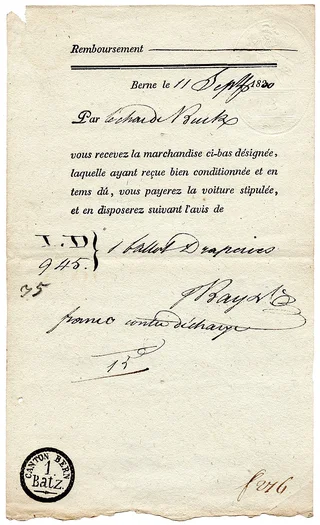 Remboursement
Berne le 11 Sept 1820
Par
vous recevez la marchandise ci-bas désignée,
laquelle ayant reçue bien conditionnée et en
tems dû, vous payerez la voiture stipulée,
et en disposerez suivant l'avis de
I.D
945. } 1 ballot Draperies
35
franco contre décharge
15
CANTON BERN
1
Batz.